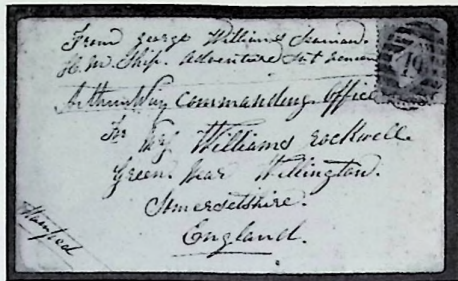 From george Williams Seaman
H.M. Ship. Adventure
Arthur Commanding Office
For Mrs Williams rockwell.
green. Near Wellington.
Somersetshire.
England.
Stamped